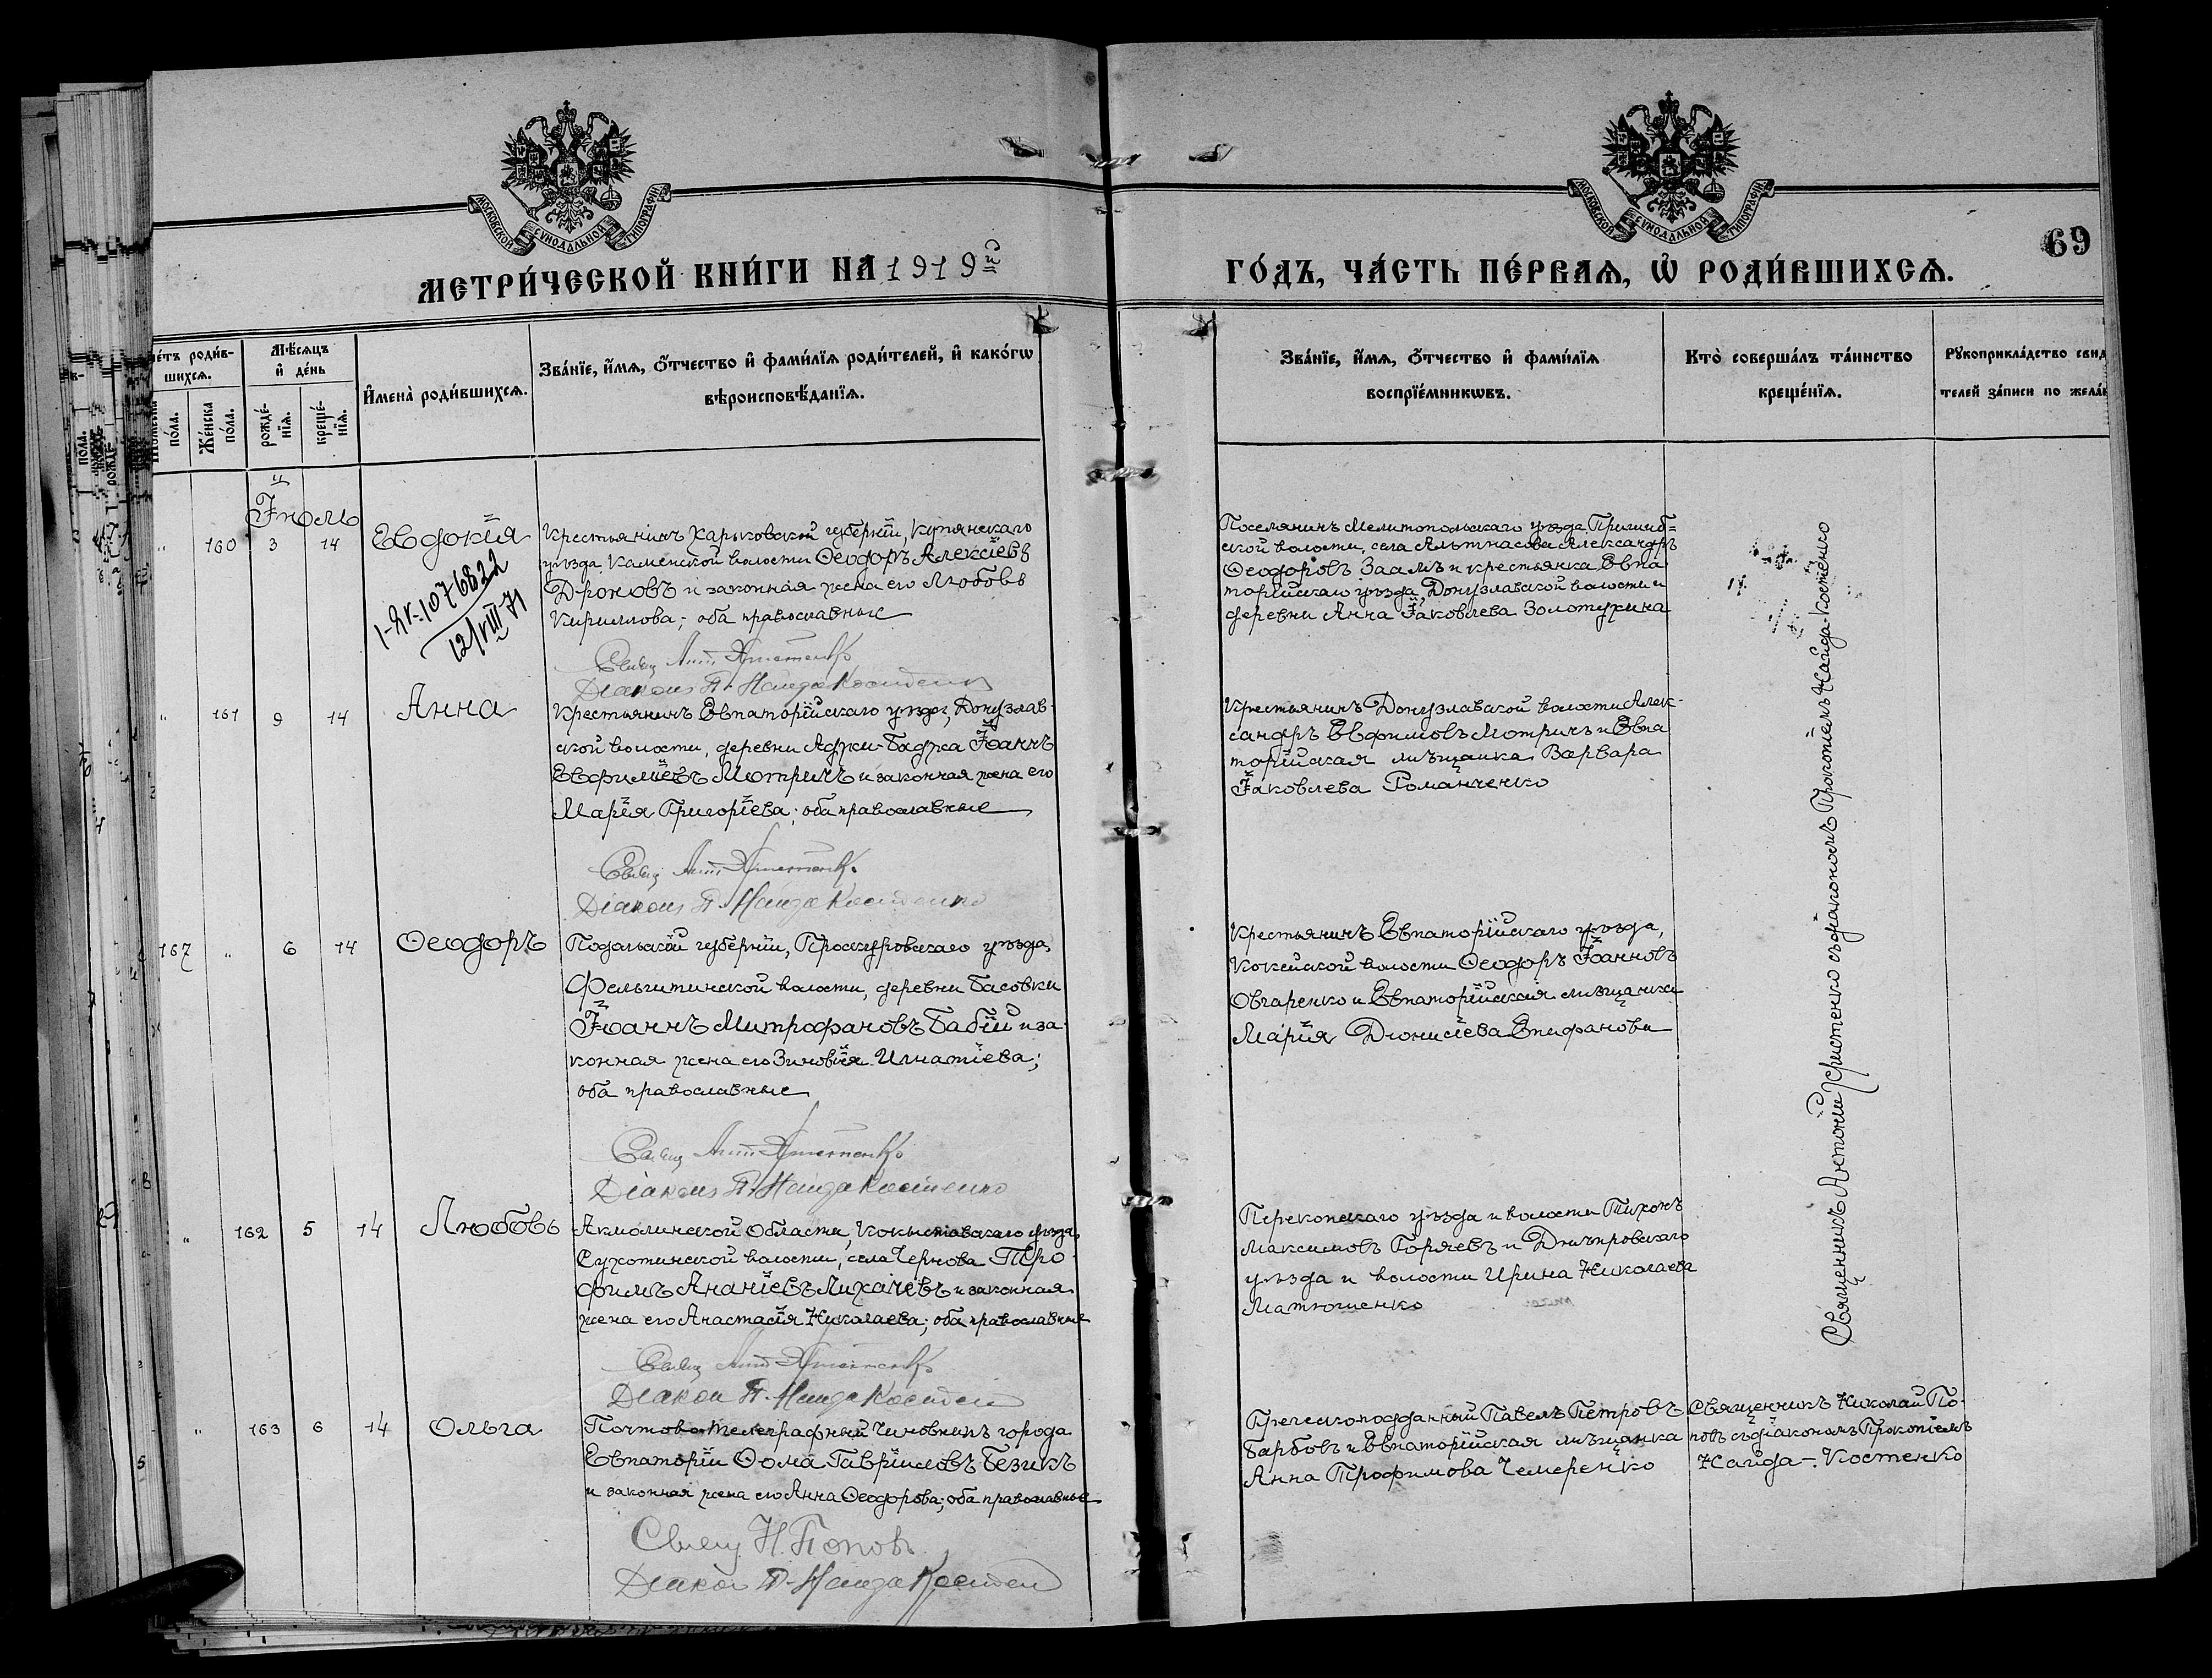 МОСКОВСКОЙ СѴНОДАЛЬНОЙ ТИПОГРАФІИ
МОСКОВСКОЙ СѴНОДАЛЬНОЙ ТИПОГРАФІИ
69
МЕТРИ́ЧЕСКОЙ КНИ́ГИ НА 1919й
ГО́ДЪ, ЧА́СТЬ ПЕ́РВАѦ, Ѡ҆ РОДИ́ВШИХСѦ.
че́тъ роди́в-
шихсѧ.
Мѣ́сѧцъ
и҆ де́нь
Мꙋ́жеска
по́ла.
Же́нска
по́ла.
рожде́-
нїѧ.
креще́-
нїѧ.
И҆мена̀ роди́вшихсѧ.
Зва́нїе, и҆́мѧ, ѻ҆́тчество и҆ фами́лїѧ роди́телей, и҆ како́гѡ
вѣроисповѣ́данїѧ.
Зва́нїе, и҆́мѧ, ѻ҆́тчество и҆ фами́лїѧ
воспрїе́мникѡвъ.
Кто̀ соверша́лъ та́инство
креще́нїѧ.
Рꙋкоприкла́дство свид
телей за́писи по жела
Іюль
" 160 3 14 Евдокія
1-ЯК-1076822
12/VIII-71
Крестьянинъ Харьковской губерніи, Купянскаго
уѣзда, Каменской волости Ѳеодоръ Алексіевъ
Дроновъ и законная жена его Любовь
Кириллова; оба православные
Свящ. Ант. Христенко
Діаконъ П. Найда Костенко
Поселянинъ Мелитопольскаго уѣзда, Пришиб=
ской волости, села Альтнасова Александръ
Ѳеодоровъ Заамъ и крестьянка Евпа
торійскаго уѣзда, Донузлавской волости и
деревни Анна Іаковлева Золотухина
" 161 9 14 Анна
Крестьянинъ Евпаторійскаго уѣзда, Донузлав-
ской волости, деревни Аджи-Баджа Іоаннъ
Евфиміевъ Мотричъ и законная жена его
Марія Григоріева; оба православные
Свящ. Ант. Христенко
Діаконъ П. Найда Костенко
Крестьянинъ Донузлавской волости Алек-
сандръ Евфимовъ Мотричъ и Евпа
торійская мѣщанка Варвара
Іаковлева Романченко
167 " 6 14 Ѳеодоръ
Подольской губерніи, Проскуровскаго уѣзда,
Фельштинской волости, деревни Басовки
Іоаннъ Митрофановъ Бабій и за-
конная жена его Зиновія Игнатіева;
оба православные
Свящ. Ант. Христенко
Діаконъ П. Найда Костенко
Крестьянинъ Евпаторійскаго уѣзда,
Кокейской волости Ѳеодоръ Іоанновъ
Овчаренко и Евпаторійская мѣщанка
Марія Діонисіева Епифанова
" 162 5 14 Любовь
Акмолинской Области, Кокчетавскаго уѣзда,
Сухотинской волости, села Чернова Тро-
фимъ Ананіевъ Лихачевъ и законная
жена его Анастасія Николаева; оба православные
Свящ. Ант. Христенко
Діакон П. Найда Костен
Перекопскаго уѣзда и волости Тихонъ
Максимовъ Горяевъ и Днѣпровскаго
уѣзда и волости Ирина Николаева
Матюшенко
Священникъ Антоній Христенко съ діакономъ Прокопіемъ Найда-Костенко
" 163 6 14 Ольга
Почтово-телеграфный Чиновникъ города
Евпаторіи Ѳома Гавріиловъ Безикъ
и законная жена его Анна Ѳеодорова; оба православные
Свящ. Н. Попов
Діакон П. Найда Костен
Греческоподданный Павелъ Петровъ
Барбовъ и Евпаторійская мѣщанка
Анна Трофимова Чемеренко
Священникъ Николай По-
повъ съ діакономъ Прокопіемъ
Найда-Костенко